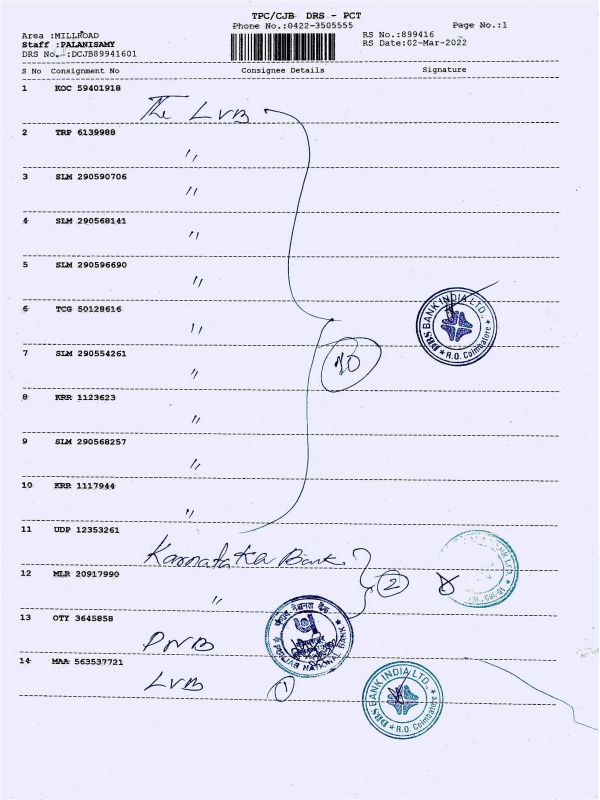 TPC/CJB DRS - PCT
Phone No.:0422-3505555
Page No.:1
Area :MILLROAD
RS No.:899416
Staff :PALANISAMY
RS Date:02-Mar-2022
DRS No.:DCJB89941601
S No Consignment No Consignee Details Signature
1 KOC 59401918
The LVB
2 TRP 6139988
"
3 SLM 290590706
"
4 SLM 290568141
"
5 SLM 290596690
"
DBS BANK INDIA LTD.,
★ R.O. Coimbatore ★
6 TCG 50128616
"
7 SLM 290554261
"
10
8 KRR 1123623
"
9 SLM 290568257
"
10 KRR 1117944
"
11 UDP 12353261
Karnataka Bank
12 MLR 20917990
"
2
13 OTY 3645858
PNB
पंजाब नैशनल बैंक
PUNJAB NATIONAL BANK
14 MAA 563537721
LVB
1
DBS BANK INDIA LTD.,
★ R.O. Coimbatore ★